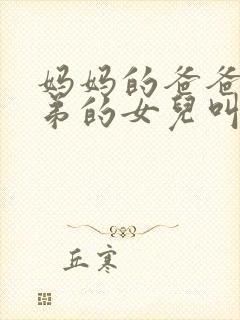 妈妈的爸爸
弟的女兒叫
丘寒